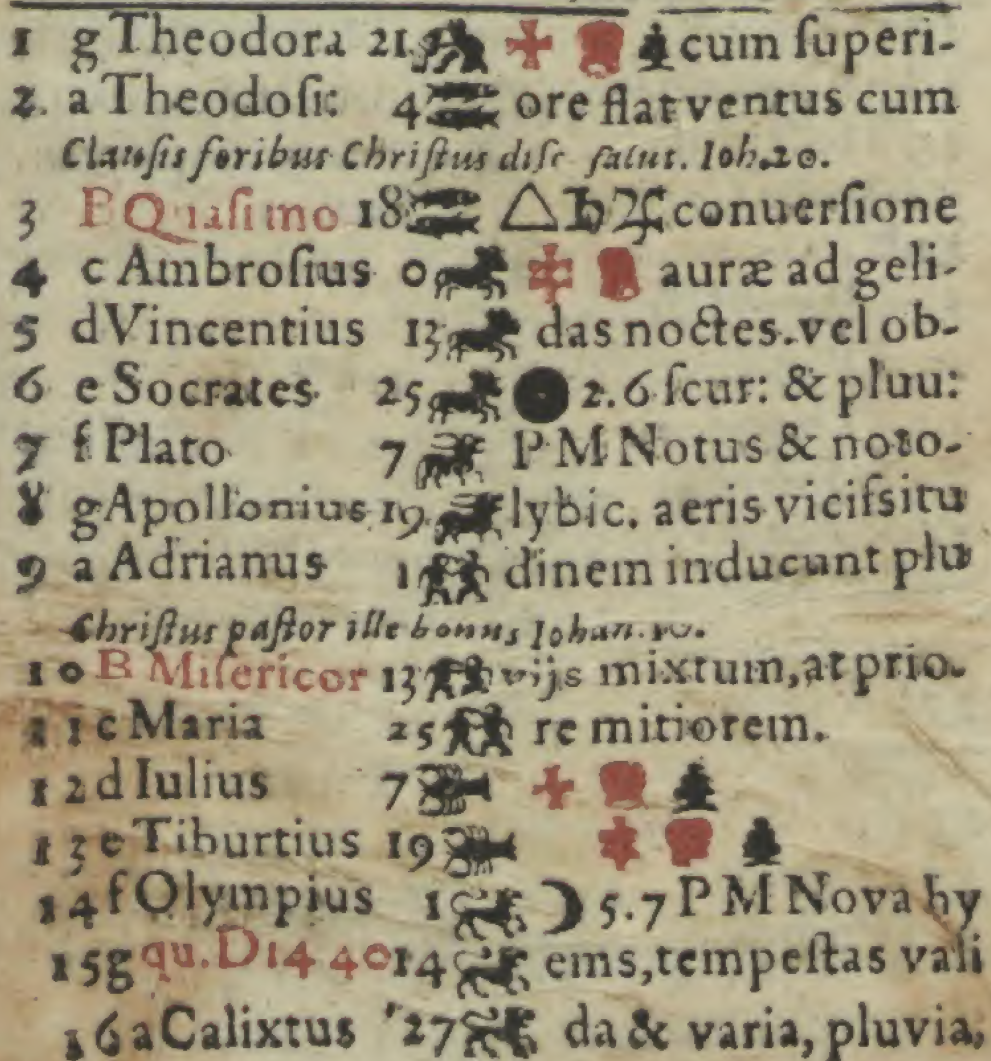 1 g Theodora 21 cum ſuperi-
2. a Theodoſi: 4 ore flat ventus cum
Clauſis foribus Chriſtus diſc ſalut. Ioh. 20.
3 B Quaſimo 18 △ ♄ ♃ conuerſione
4 c Ambroſius 0 auræ ad geli-
5 d Vincentius 13 das noctes. vel ob-
6 e Socrates 25 ● 2. 6 ſcur: & pluu:
7 f Plato 7 P M Notus & noto-
8 g Apollonius 19 lybic. aeris viciſsitu
9 a Adrianus 1 dinem inducunt plu
Chriſtus paſtor ille bonus Johan. 10.
10 B Miſericor 13 vijs mixtum, at prio-
11 c Maria 25 re mitiorem.
12 d Iulius 7
13 e Tiburtius 19
14 f Olympius 1 ☽ 5. 7 P M Nova hy
15 g qu. D 14 40 14 ems, tempeſtas vali
16 a Calixtus 27 da & varia, pluvia,